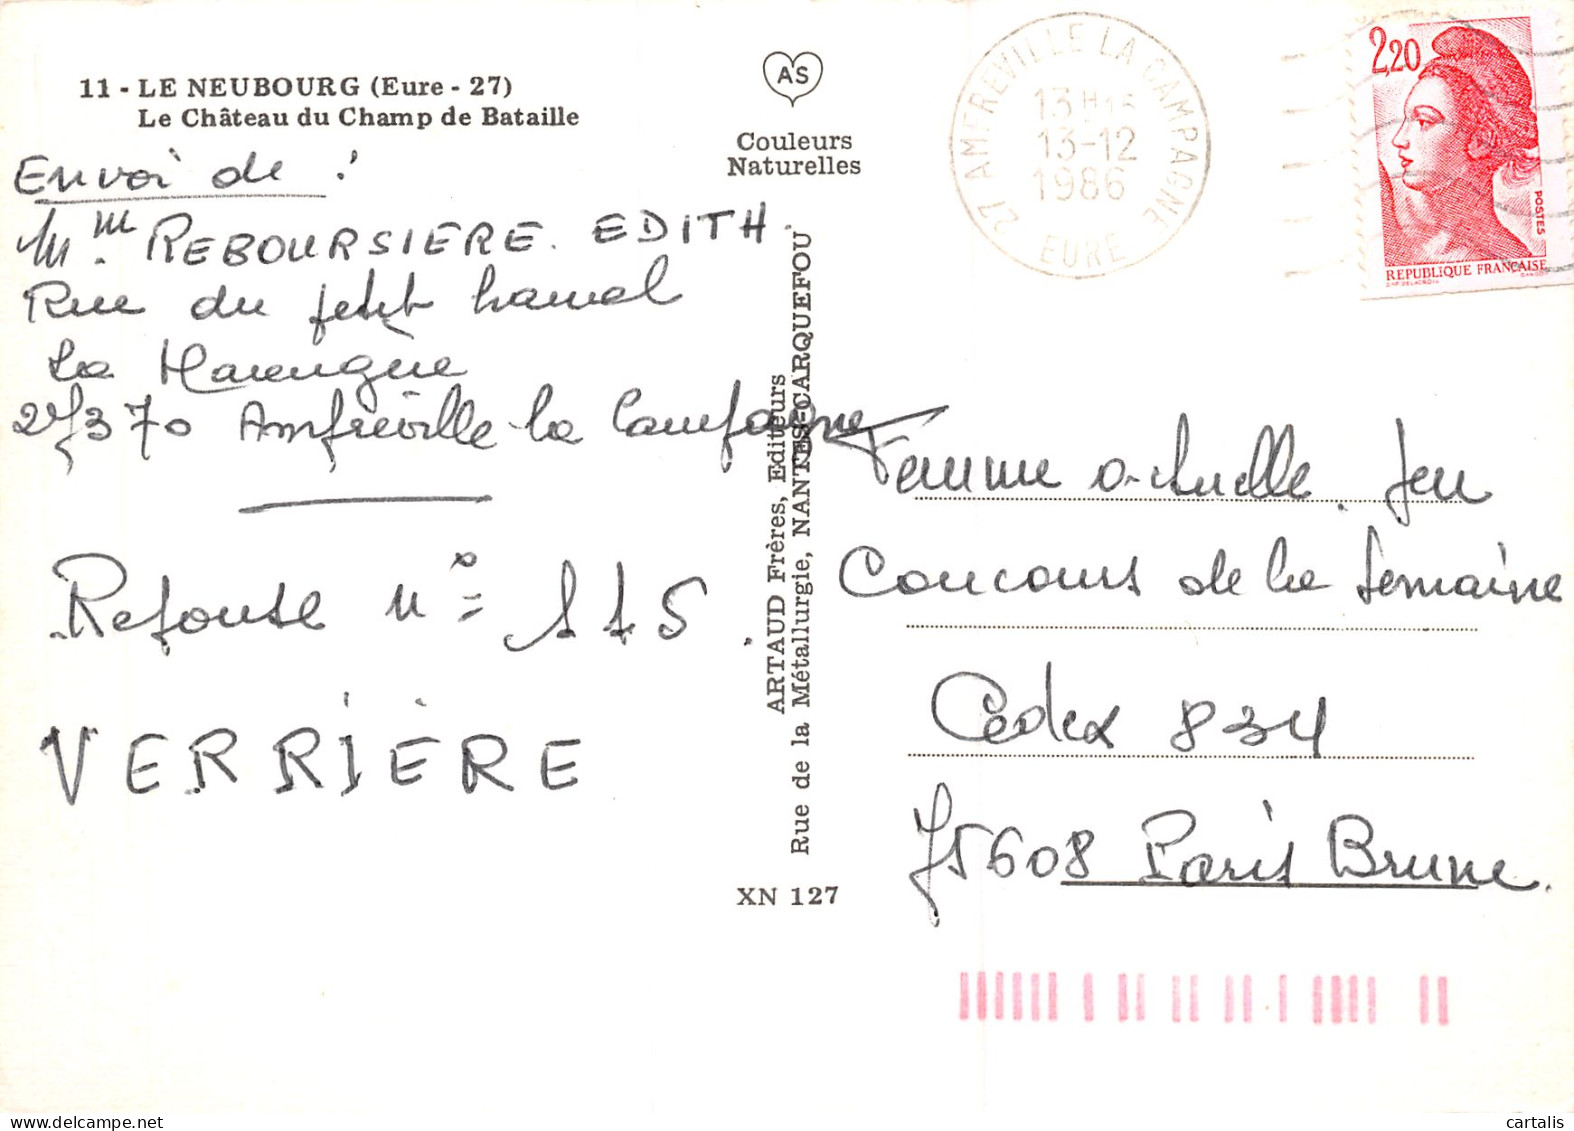 11 - LE NEUBOURG (Eure - 27)
Le Château du Champ de Bataille
Envoi de :
Mme. REBOURSIERE. EDITH.
Rue du petit hamel
La Harengère
27370 Amfreville-la Campagne
Reponse n° = 115.
VERRIÈRE
AS
Couleurs
Naturelles
ARTAUD Frères, Editeurs
Rue de la Métallurgie, NANTES-CARQUEFOU
XN 127
27 AMFREVILLE LA CAMPAGNE
13 H
13-12
1986
EURE
2,20
POSTES
REPUBLIQUE FRANÇAISE
Femme actuelle. Jeu
Concours de la Semaine
Cedex 834
75608 Paris Brune.
cartalis | delcampe.net